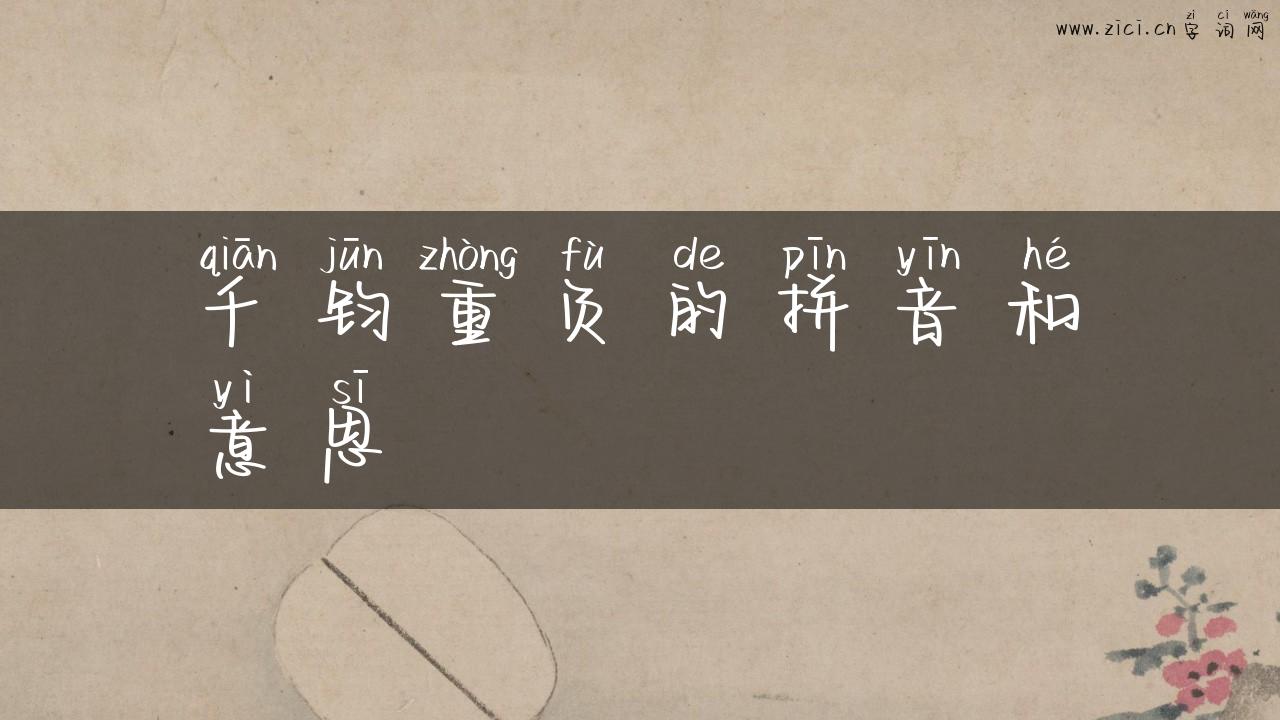 zì cí wǎng
www.zici.cn字词网
qiān jūn zhòng fù de pīn yīn hé
千钧重负的拼音和
yì sī
意思